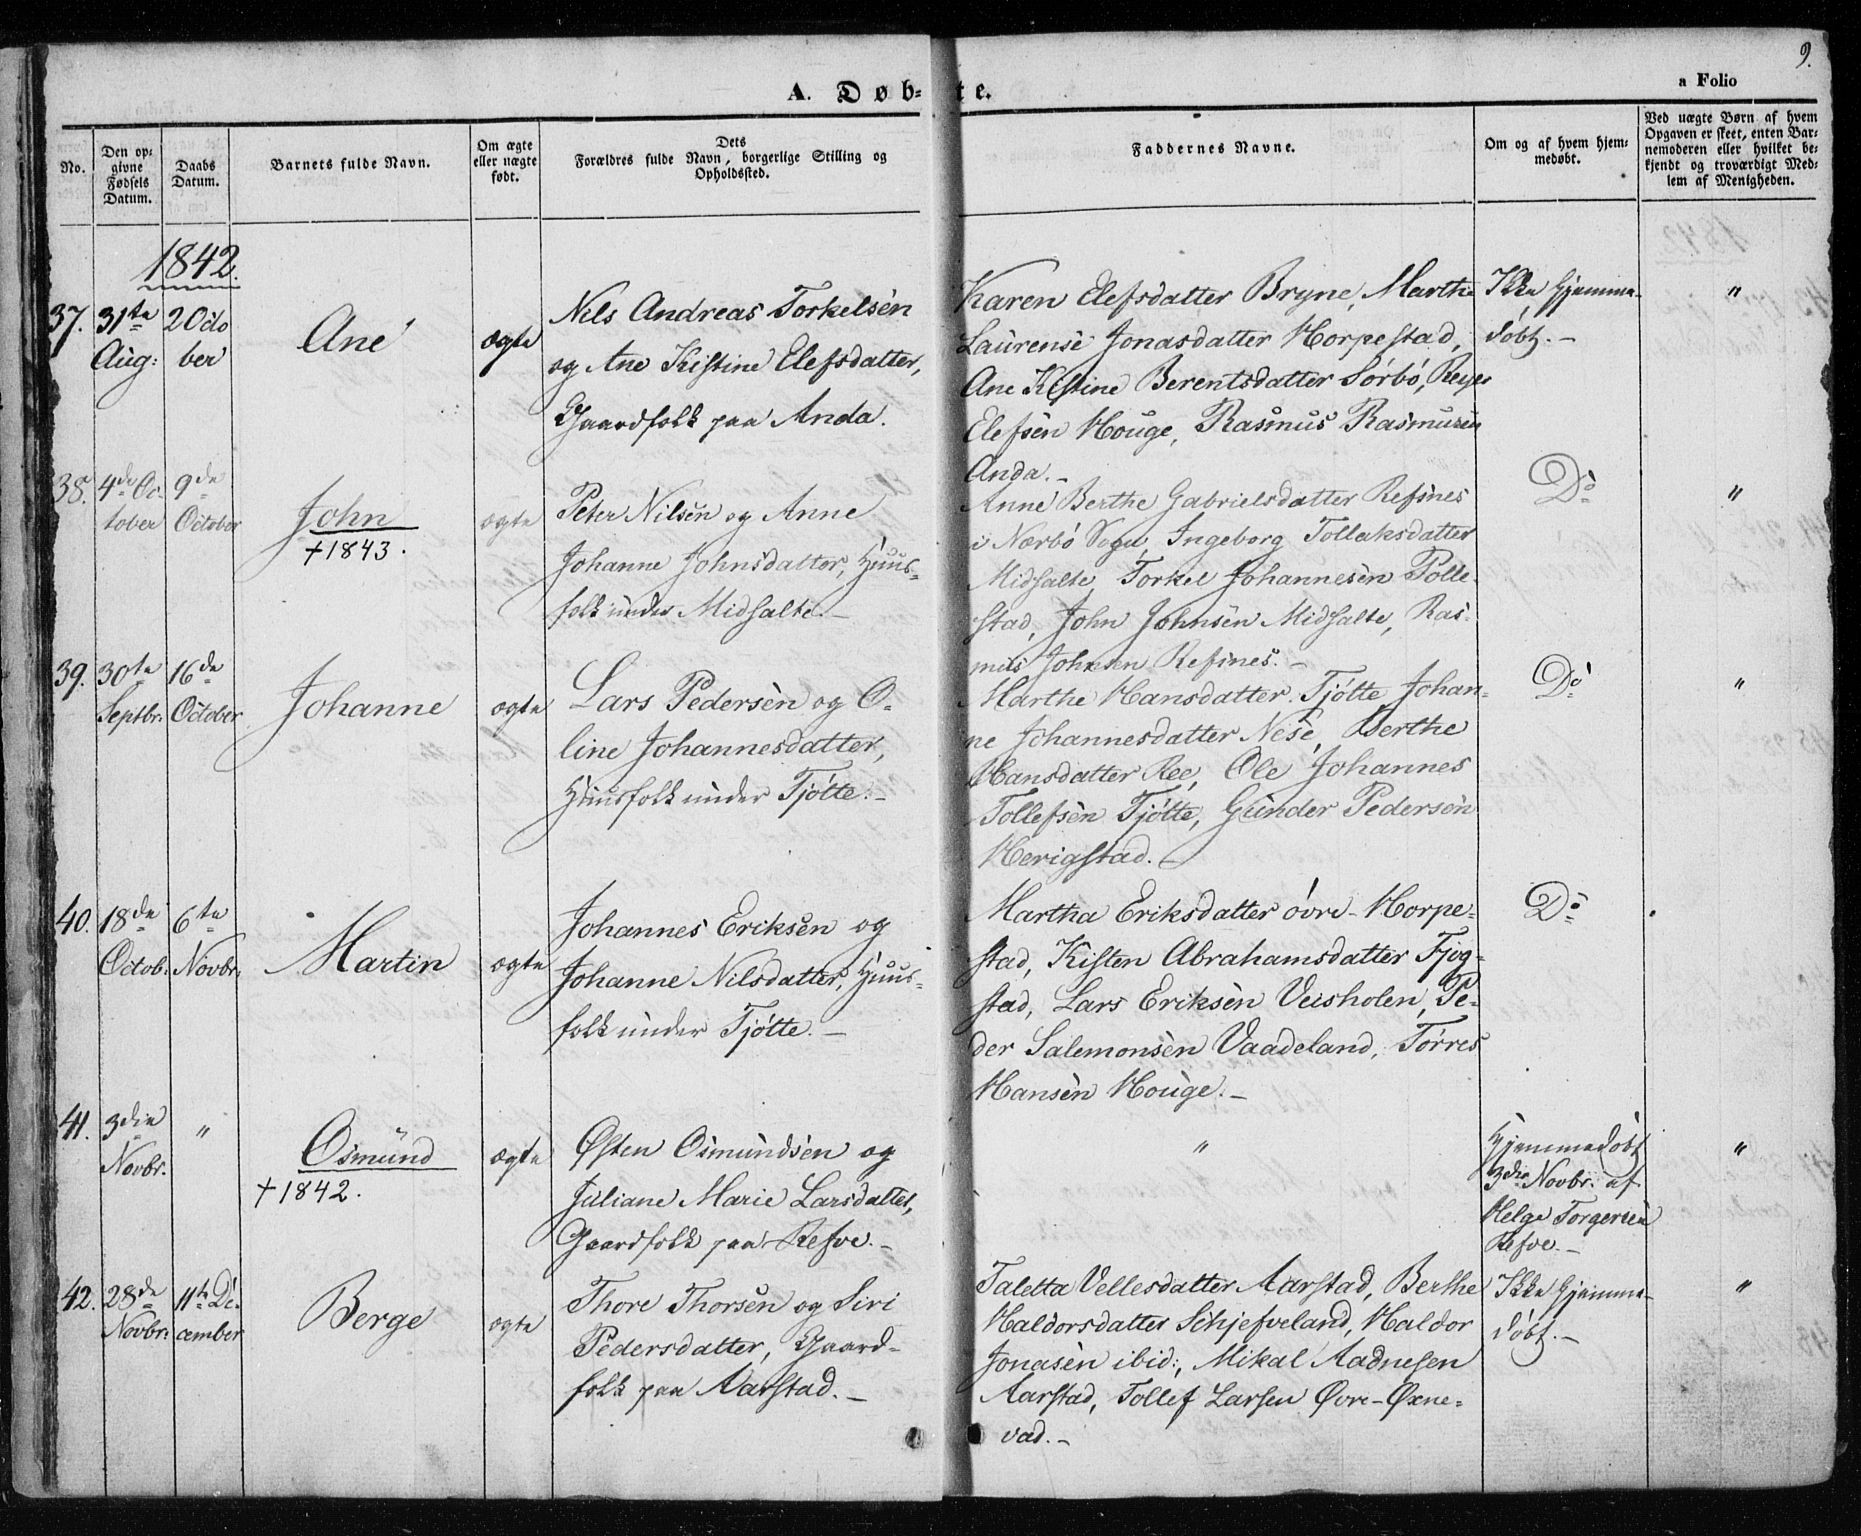 9.
A. Døbte.
a Folio
No.
Den op-
givne
Fødsels
Datum.
Daabs
Datum.
Barnets fulde Navn.
Om ægte
eller uægte
født.
Dets
Forældres fulde Navn, borgerlige Stilling og
Opholdssted.
Faddernes Navne.
Om og af hvem hjem-
medøbt.
Ved uægte Børn af hvem
Opgaven er skeet, enten Bar-
nemoderen eller hvilket be-
kjendt og troværdigt Med-
lem af Menigheden.
1842.
37.
31te
Aug:
2 Octo
ber
Ane
ægte
Nils Andreas Torkelsen
og Ane Kistine Elefsdatter,
Gaardfolk paa Anda.
Karen Elefsdatter Bryne, Marthe
Laurense Jonasdatter Horpestad,
Ane Kistine Berentsdatter Sørbø, Reyer
Elefsen Houge, Rasmus Rasmusen
Anda. -
Ikke Hjemme-
døbt. -
"
38.
4de Oc-
tober
9de
October
John
+ 1843.
ægte
Peter Nilsen og Anne
Johanne Johnsdatter, Huus-
folk under Midhalte. -
Anne Berthe Gabrielsdatter Refsnes
i Nærbø Sogn, Ingeborg Tollaksdatter
Midsalte, Torkel Johannesen Polle-
stad, John Johnsen Midsalte, Ras-
mus Johnsen Refsnes. -
Do
"
39.
30te
Septbr:
16de
October
Johanne
ægte
Lars Pedersen og O-
line Johannesdatter,
Huusfolk under Tjøtte. -
Marthe Hansdatter Tjøtte, Johan-
ne Johannesdatter Nese, Berthe
Hansdatter Ree, Ole Johannes
Tollefsen Tjøtte, Gunder Pedersen
Herigstad. -
Do
"
40.
18de
Octob:
6te
Novbr:
Martin
ægte
Johannes Eriksen og
Johanne Nilsdatter, Huus-
folk under Tjøtte. -
Martha Eriksdatter øvre-Horpe-
stad, Kisten Abrahamsdatter Fjog-
stad, Lars Eriksen Veisholen, Pe-
der Salemonsen Vaadeland, Tørres
Hansen Houge. -
Do
41.
3die
Novbr.
"
Osmund
+ 1842.
ægte
Østen Osmundsen og
Juliane Marie Larsdatter,
Gaardfolk paa Refve. -
"
Hjemmedøbt
3die Novbr. af
Helge Torgersen
Refve. -
"
42.
28de
Novbr:
11te De-
cember
Berge
ægte
Thore Thorsen og Siri
Pedersdatter, Gaard-
folk paa Aarstad. -
Taletta Vellesdatter Aarstad, Berthe
Haldorsdatter Schjefveland, Haldor
Jonasen ibid:, Mikal Aadnesen
Aarstad, Tollef Larsen Øvre-Øxne-
vad. -
Ikke Hjemme-
døbt. -
"